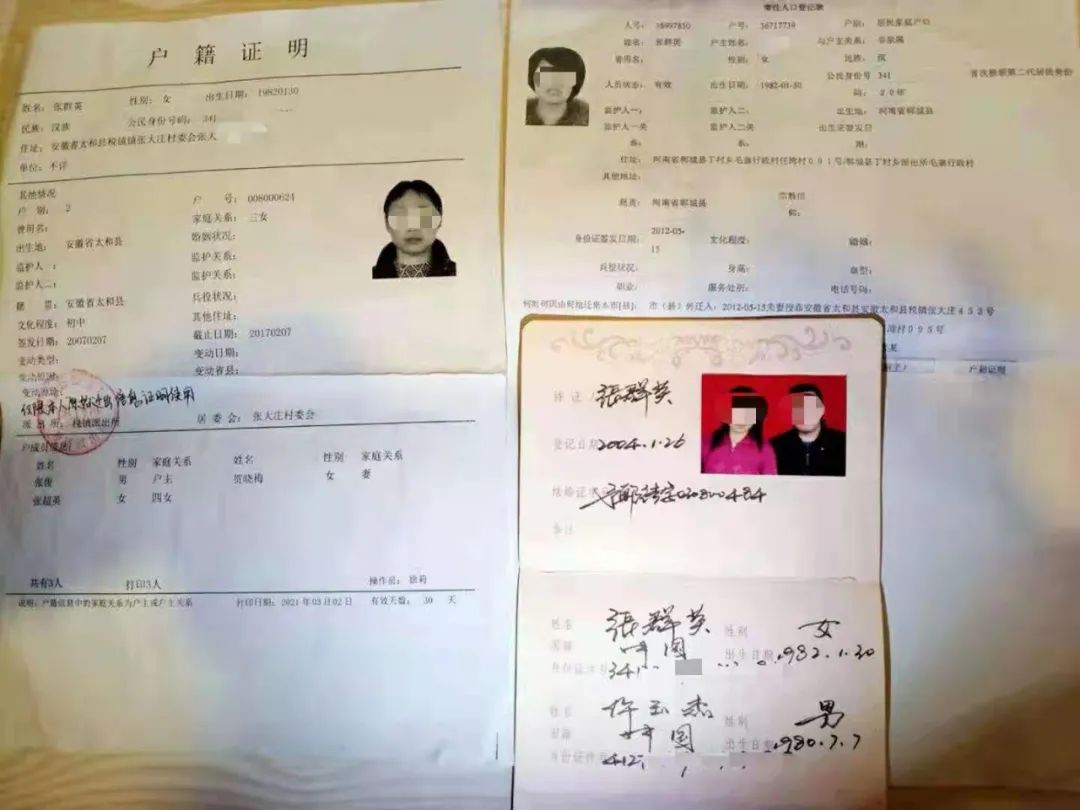 户籍证明
姓名：张群英 性别：女 出生日期：19820130
民族：汉族 公民身份号码：341
住址：安徽省太和县税镇镇张大庄村委会张大
单位：不详
其他情况
户 别：2 户 号：008000624
曾用名： 家庭关系：三女
出生地：安徽省太和县 婚姻状况：
监护人一： 监护关系：
监护人二： 监护关系：
籍 贯：安徽省太和县 兵役状况：
文化程度：初中 其他住址：
签发日期：20070207 截止日期：20170207
变动类型： 变动日期：
变动原因： 变动省县：
变动源地：
派出所：税镇派出所 居委会：张大庄村委会
户成员情况
姓名 性别 家庭关系 姓名 性别 家庭关系
张俊 男 户主 贺晓梅 女 妻
张超英 女 四女
共有3人 打印3人 操作员：徐莉
说明：户籍信息中的家庭关系为户主或户主关系 打印日期：2021年03月02日 有效天数：30 天
常住人口登记表
人号：38997850 户号：36717739 户别：居民家庭户口
姓名：张群英 户主姓名： 与户主关系：非亲属
曾用名： 性别：女 民族：汉
人员状态：有效 出生日期：1982-01-30 公民身份号码：341 首次换领第二代居民身份
20年
监护人一： 监护人二： 出生地：河南省郸城县
监护人一关系： 监护人二关系： 出生证签发日期：
住址：河南省郸城县丁村乡毛寨行政村任湾村091号/郸城县丁村乡派出所毛寨行政村
其他地址：
籍贯：河南省郸城县 宗教信仰：
身份证签发日期：2012-05-15 文化程度： 婚姻：
兵役状况： 身高： 血型：
职业： 服务处所： 电话号码：
何时何因由何地迁来本市[县]： 市（县）外迁入：2012-05-15夫妻投靠安徽省太和县安徽太和县税镇张大庄453号
湾村095号
户籍证明
持证人 張群英
登记日期 2004.1.26
结婚证字号
备注
姓名 張群英 性别 女
国籍 中国 出生日期 1982.1.30
身份证件号 341
姓名 许玉杰 性别 男
国籍 中国 出生日期 1980.7.7
身份证件号 412